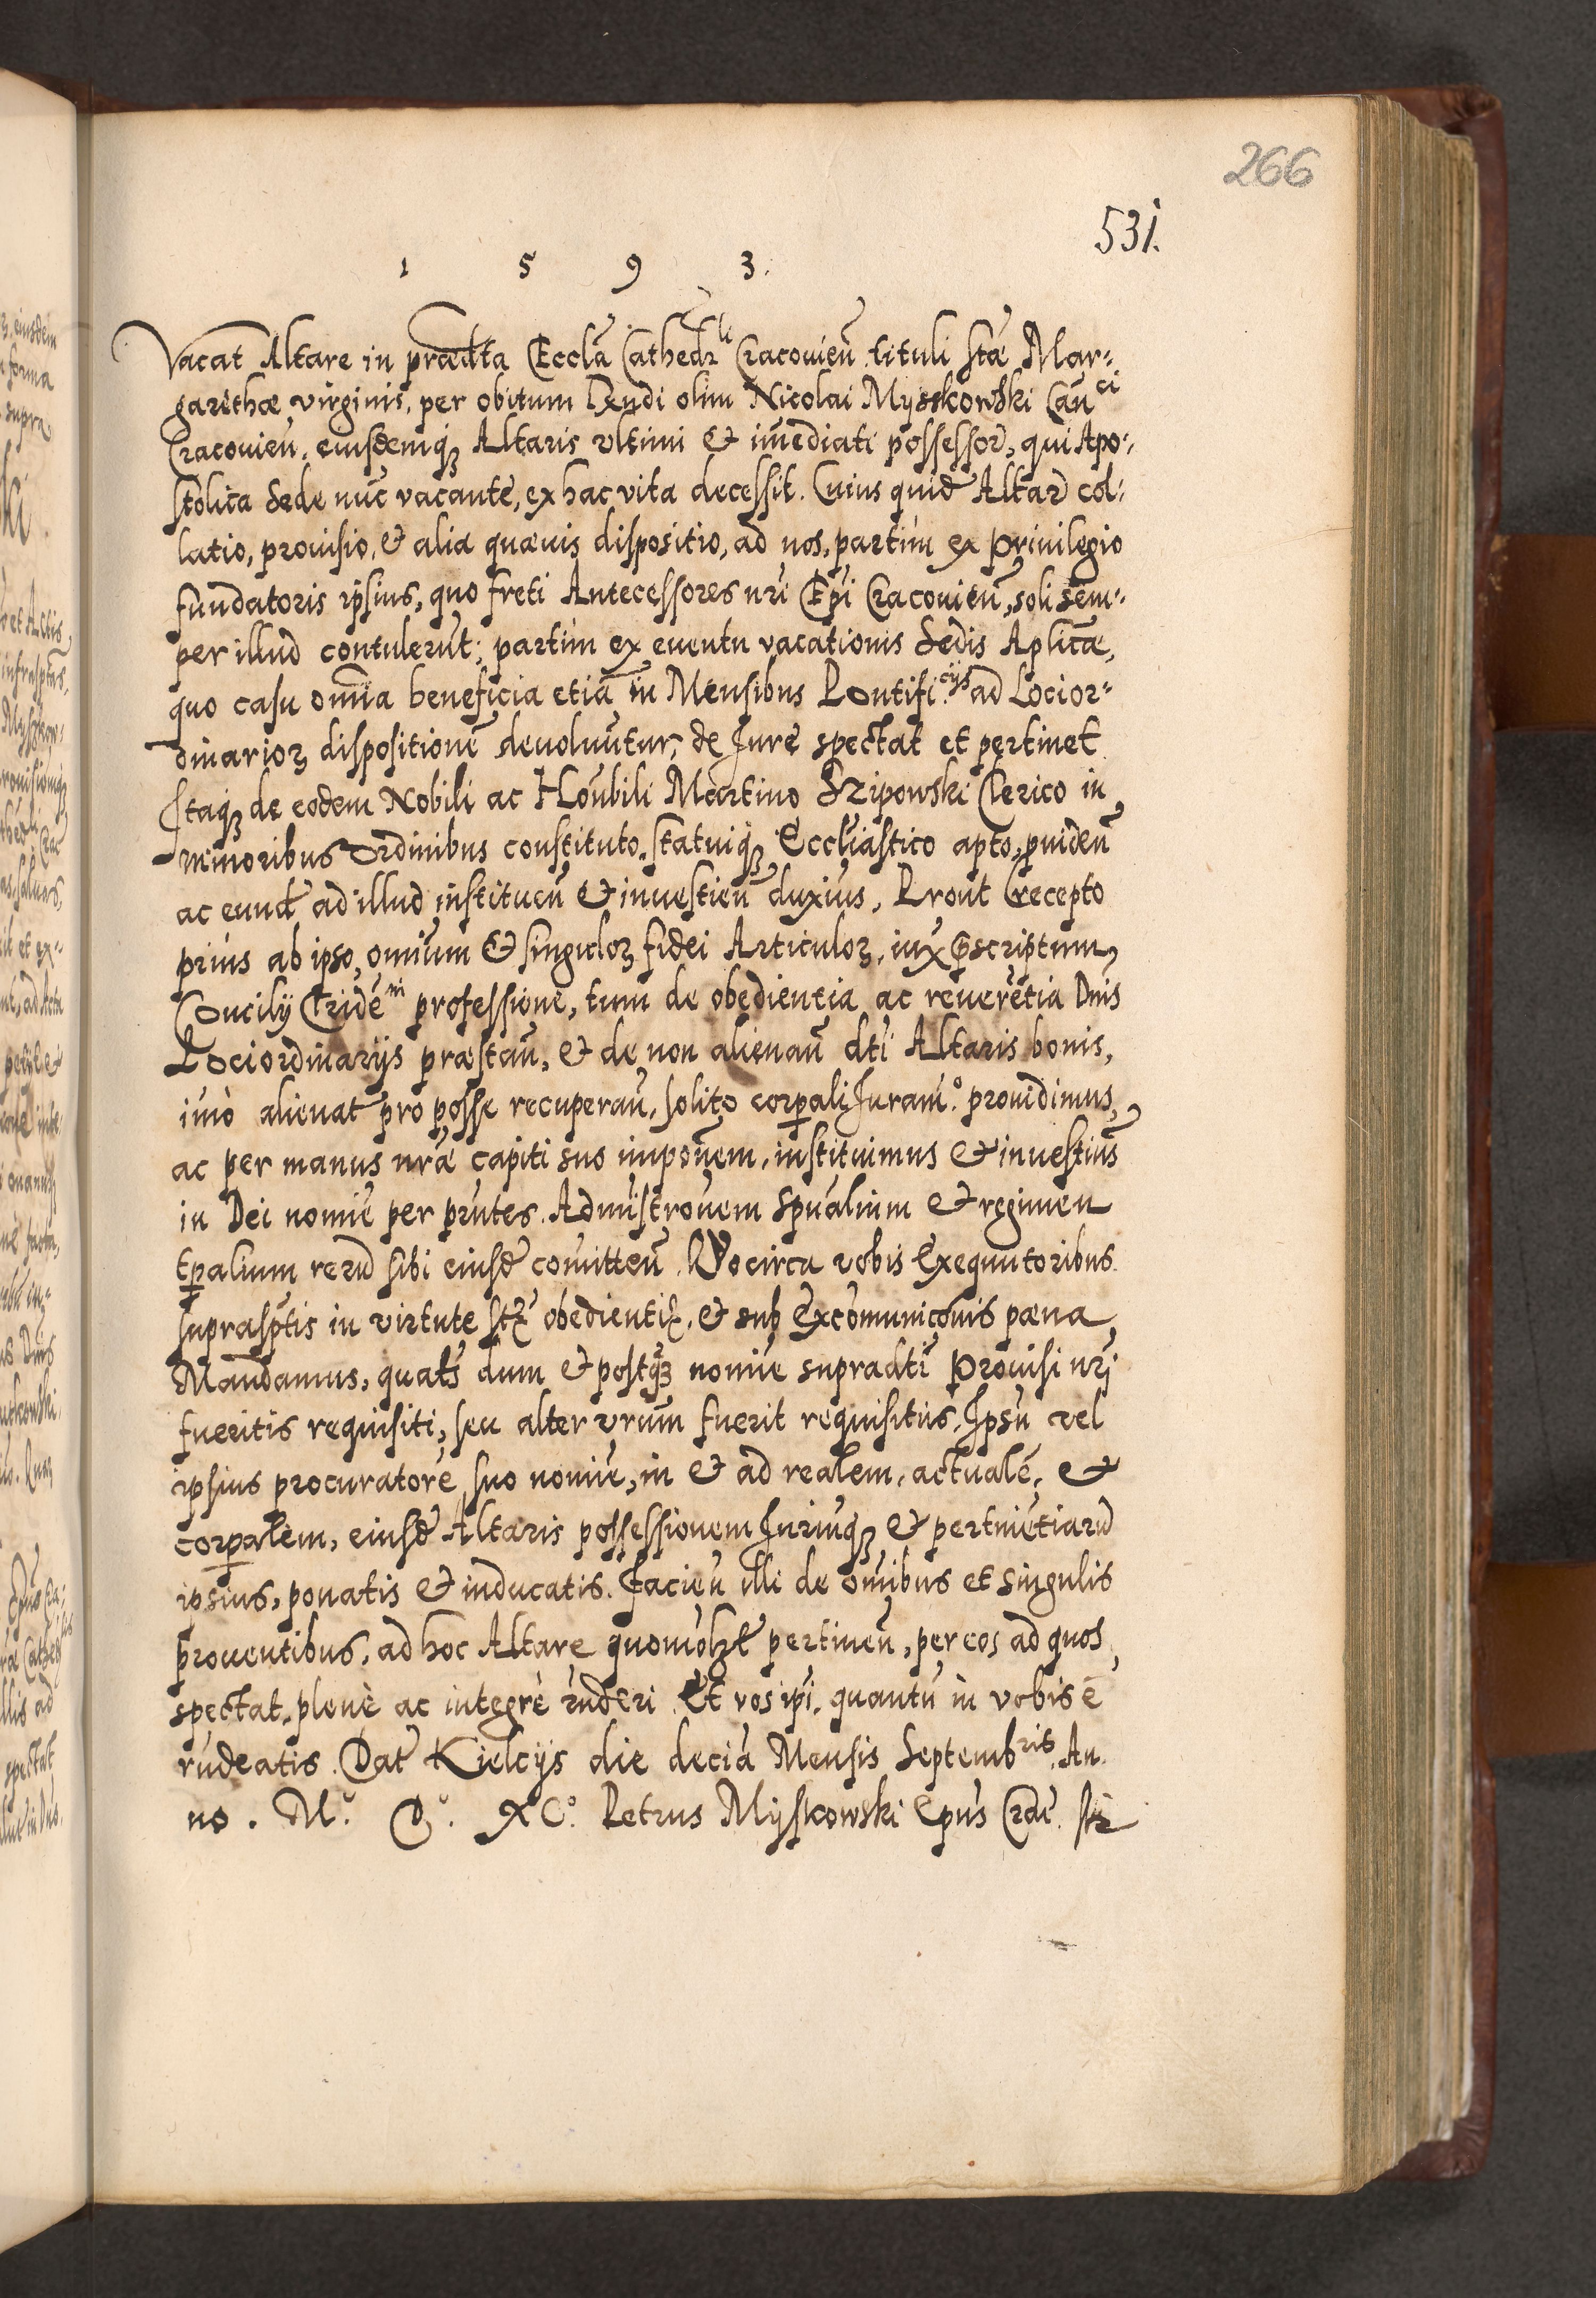 266
531.
1 5 9 3.
Vacat Altare in prædta Eccla Cathedrli Cracouien tituli stæ Mar-
garethæ virginis, per obitum Rndi olim Nicolai Mysskowski Canci
Cracouien, eiusdemq3 Altaris vltimi & imediati possessor, qui Apo-
stolica Sede nūc vacante, ex hac vita decessit. Cuius quid Altar col-
latio, prouisio, & alia quæuis dispositio, ad nos, partim ex Priuilegio
fundatoris ipsius, quo freti Antecessores nri Epi Cracouien, soli sem-
per illud contulerūt; partim ex euentu vacationis Sedis Aplicæ,
quo casu omia beneficia etiā in Mensibus Pontificijs ad Locior-
dinarior3 dispositionē deuoluuntur, de Jure spectat et pertinet
Itaq3 de eodem Nobili ac Honbili Martino Szipowski Clerico in
minoribus Ordinibus constituto, statuiq3 Eccliastico apto, puiden
ac eund ad illud instituen & inuestien duxius, Prout recepto
prius ab ipso, omium & singulor3 fidei Articulor3, iux pscriptum
Concilij Tridēni professione, tum de obedientia ac reuerētia Dnis
Lociordinarijs præstan, & de non alienan dti Altaris bonis,
imò alienat pro posse recuperan, solito corpali Juram.o prouidimus,
ac per manus nræ capiti suo imponem, instituimus & inuestius
in Dei nomie per pntes. Admistronem spualium & regimen
tpalium rerū sibi eiusd comitten. Quocirca vobis Exequutoribus
suprasptis in virtute stæ obedientiæ, & sub Excomuniconis pæna
Mandamus, quats dum & postq3 nomie supradti Prouisi nri
fueritis requisiti, seu alter vrum fuerit requisitus, Ipsū vel
ipsius procuratorē suo nomie, in & ad realem, actualē, &
corpalem, eiusd Altaris possessionem Juriuq3 & pertinētiarū
ipsius, ponatis & inducatis. Facien illi de omibus et singulis
prouentibus, ad hoc Altare quomolt pertinen, per eos ad quos
spectat, plenè ac integrè rnderi. Et vos ipi, quantū in vobis ē
rndeatis. Dat Kielcijs die decia Mensis Septembris, An
no. Mo. Do. XCo. Petrus Myskowski Epus